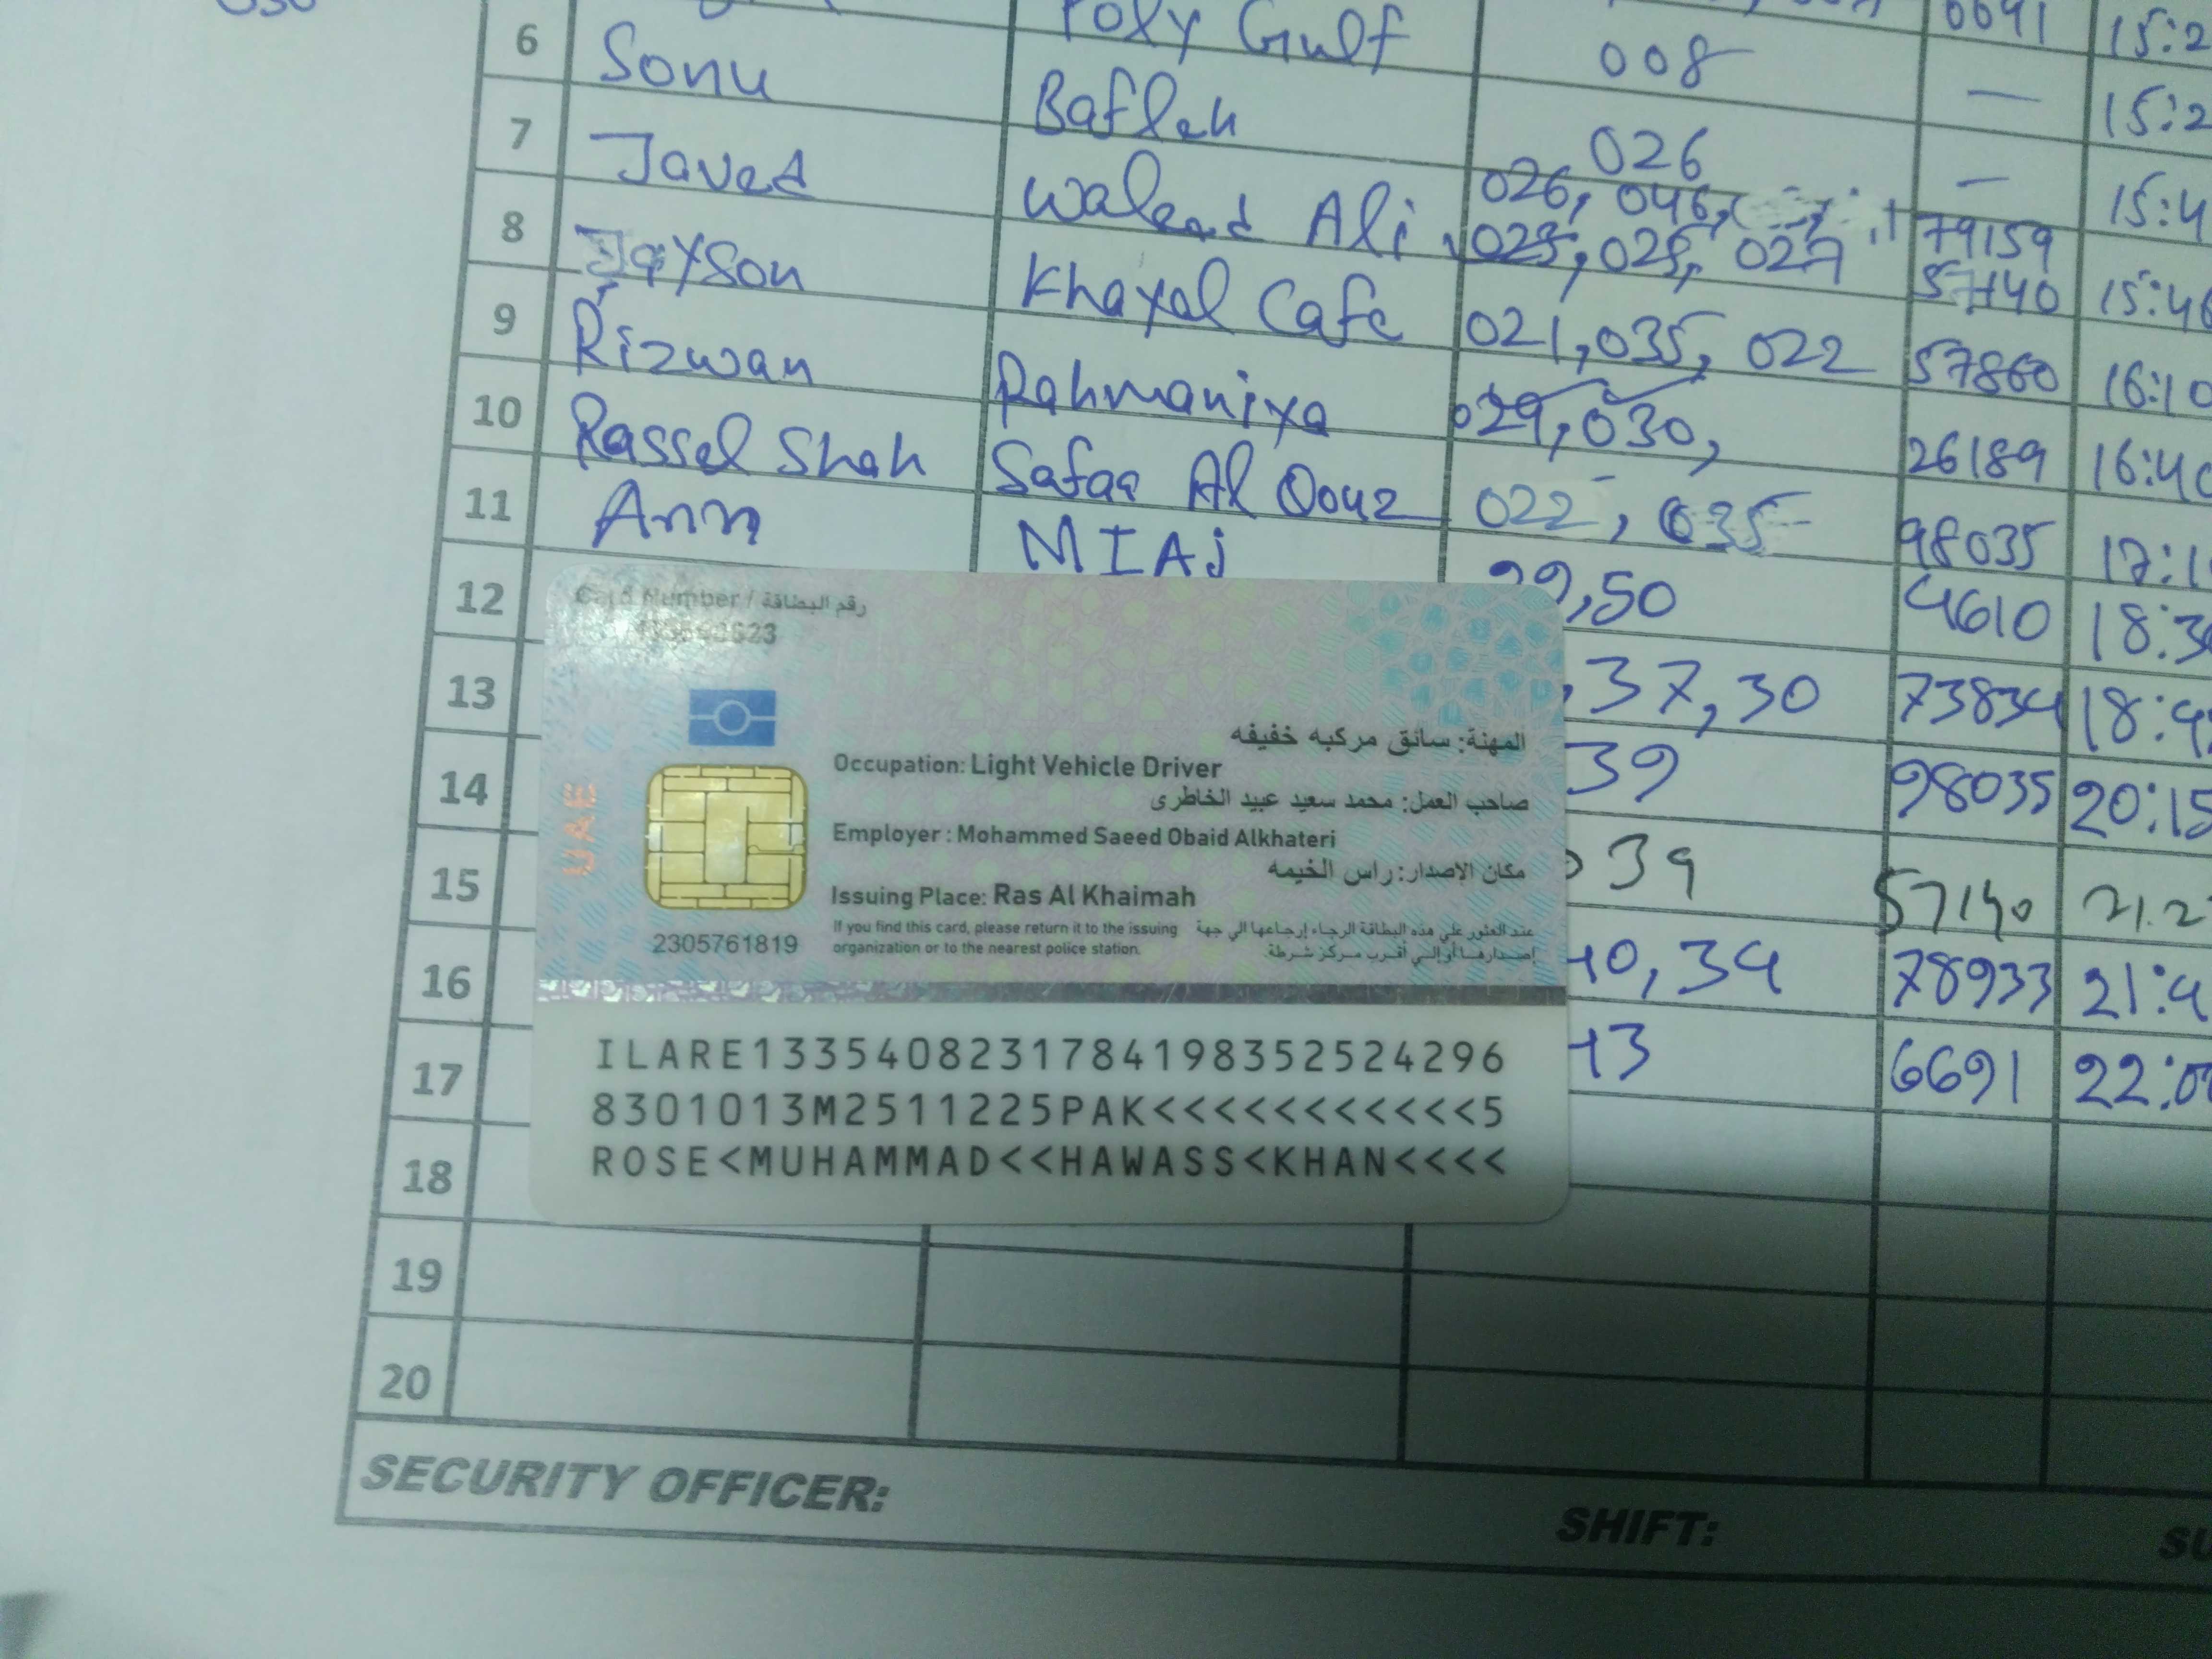 6 Sonu Poly Gulf 008
7 Javed Baflah 026 —
8 Jayson Waleed Ali 026, 046, 79159
023, 025, 027 57140
9 Rizwan Khayal Cafe 021, 035, 022 57860
10 Rassel Shah Rahmaniya 029, 030, 26189
11 Ann Safaa Al Qouz 022, 035 98035
12 MIAJ ,50 4610
13 ,37,30 73834
14 39 98035
15 39 57140
16 ,34 78933
17 6691
18
19
20
Card Number / رقم البطاقة
المهنة: سائق مركبه خفيفه
Occupation: Light Vehicle Driver
صاحب العمل: محمد سعيد عبيد الخاطرى
Employer : Mohammed Saeed Obaid Alkhateri
مكان الإصدار: راس الخيمه
Issuing Place: Ras Al Khaimah
If you find this card, please return it to the issuing
organization or to the nearest police station.
عند العثور علي هذه البطاقة الرجاء إرجاعها الي جهة
إصدارها أو إلي أقرب مركز شرطة.
UAE
2305761819
ILARE1335408231784198352524296
8301013M2511225PAK<<<<<<<<<<<5
ROSE<MUHAMMAD<<HAWASS<KHAN<<<<
SECURITY OFFICER:
SHIFT: